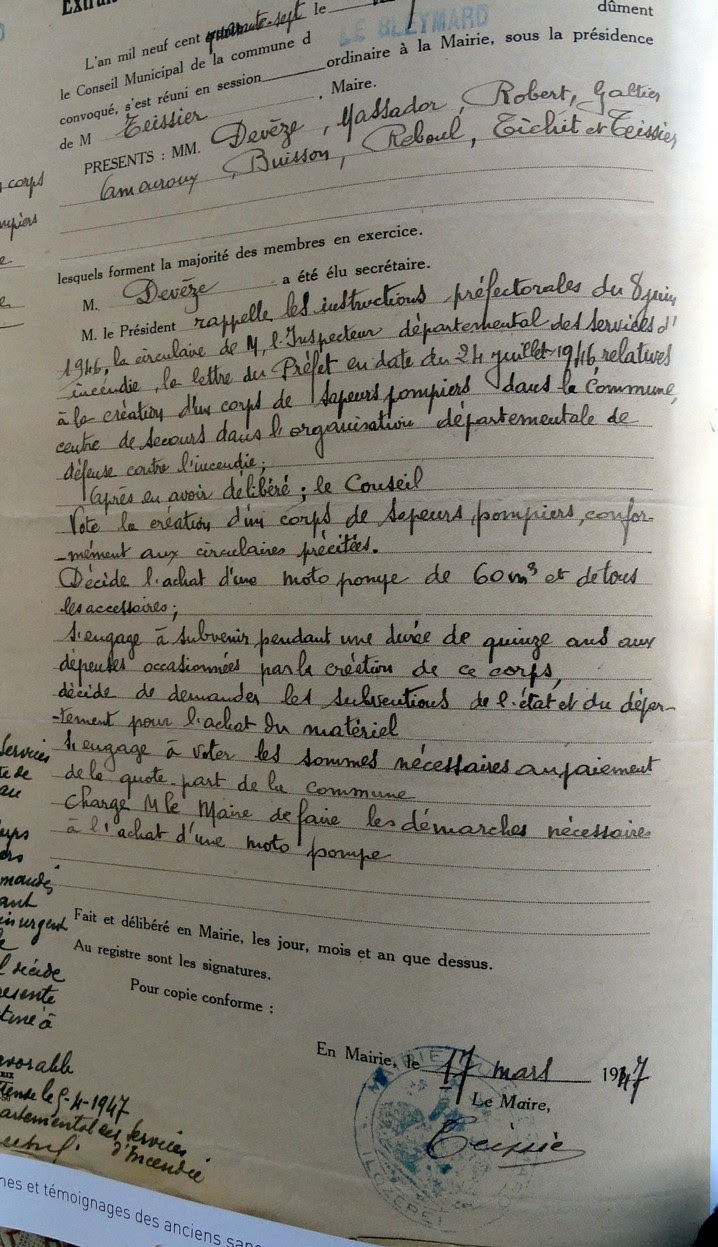 Extrai
L'an mil neuf cent quarante-sept le
dûment
le Conseil Municipal de la commune d LE BLEYMARD
convoqué, s'est réuni en session ordinaire à la Mairie, sous la présidence
de M Teissier , Maire.
PRESENTS : MM. Devèze, Massador, Robert, Galtier
Camouroux, Buisson, Reboul, Tichit et Teissier
lesquels forment la majorité des membres en exercice.
M. Devèze a été élu secrétaire.
M. le Président rappelle les instructions préfectorales du 8 juin
1946, la circulaire de M, l'Inspecteur départemental des Services d'
incendie, la lettre du Préfet en date du 24 juillet 1946 relatives
à la création d'un corps de sapeurs pompiers dans la Commune,
centre de secours dans l'organisation départementale de
défense contre l'incendie;
Après en avoir délibéré ; le Conseil
Vote la création d'un corps de sapeurs, pompiers, confor-
-mément aux circulaires précitées.
Décide l'achat d'une moto pompe de 60 m³ et de tous
les accessoires;
S'engage à subvenir pendant une durée de quinze ans aux
dépenses occasionnées par la création de ce corps,
décide de demander les subventions de l'état et du dépar-
-tement pour l'achat du matériel
S'engage à voter les sommes nécessaires au paiement
de la quote-part de la Commune
Charge M le Maire de faire les démarches nécessaires
à l'achat d'une moto pompe
Fait et délibéré en Mairie, les jour, mois et an que dessus.
Au registre sont les signatures.
Pour copie conforme :
En Mairie, le 17 mars 1947
Le Maire,
Teissier
MAIRIE
(LOZERE)
corps
mpiers
Services
te de
au
mps
ers
mande
ant
insurgent
le
décide
resente
time à
avorable
le 5-4-1947
artemental des Services
d'Incendie
nes et témoignages des anciens sap